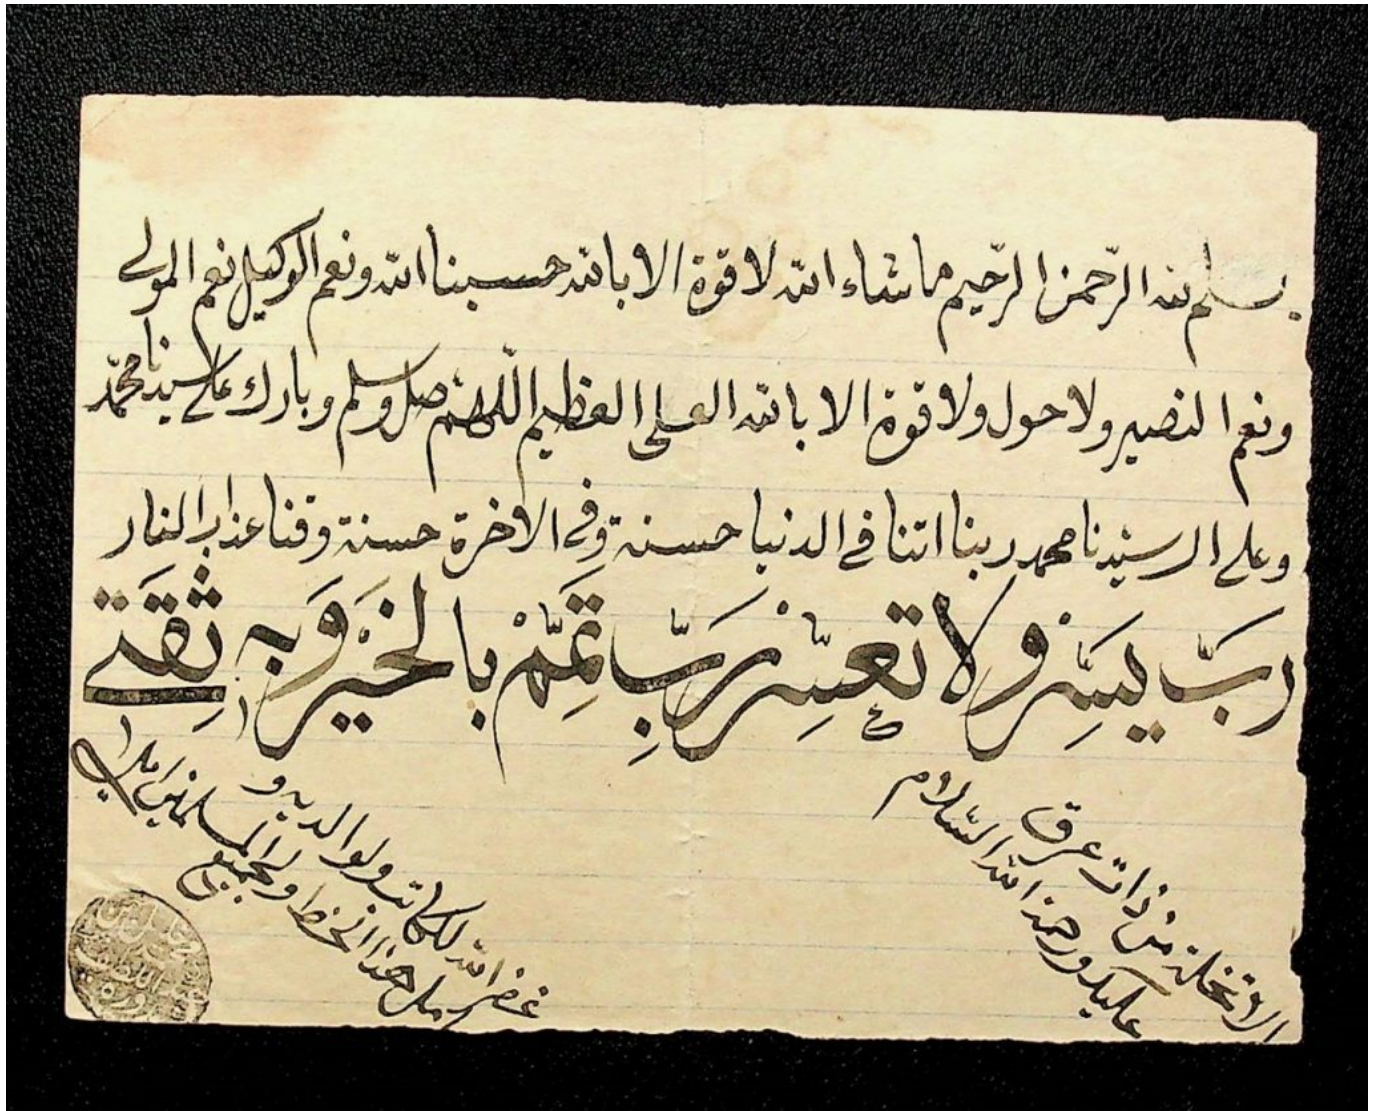 بسم الله الرحمن الرحيم ما شاء الله لا قوة الا بالله حسبنا الله ونعم الوكيل نعم المولى
ونعم النصير ولا حول ولا قوة الا بالله العلى العظيم اللهم صل وسلم وبارك على سيدنا محمد
وعلى ال سيدنا محمد ربنا اتنا في الدنيا حسنة وفي الاخرة حسنة وقنا عذاب النار
رَبِّ يَسِّرْ ولا تعسِّرْ رَبِّ تَمِّمْ بالخَيْر وَبِه ثِقَتِي
الا يا نخلة من ذات عرق
عليك ورحمة الله السلام
غفر الله لكاتبه ولوالديه و
هذا الخط ولجميع المسلمين امين